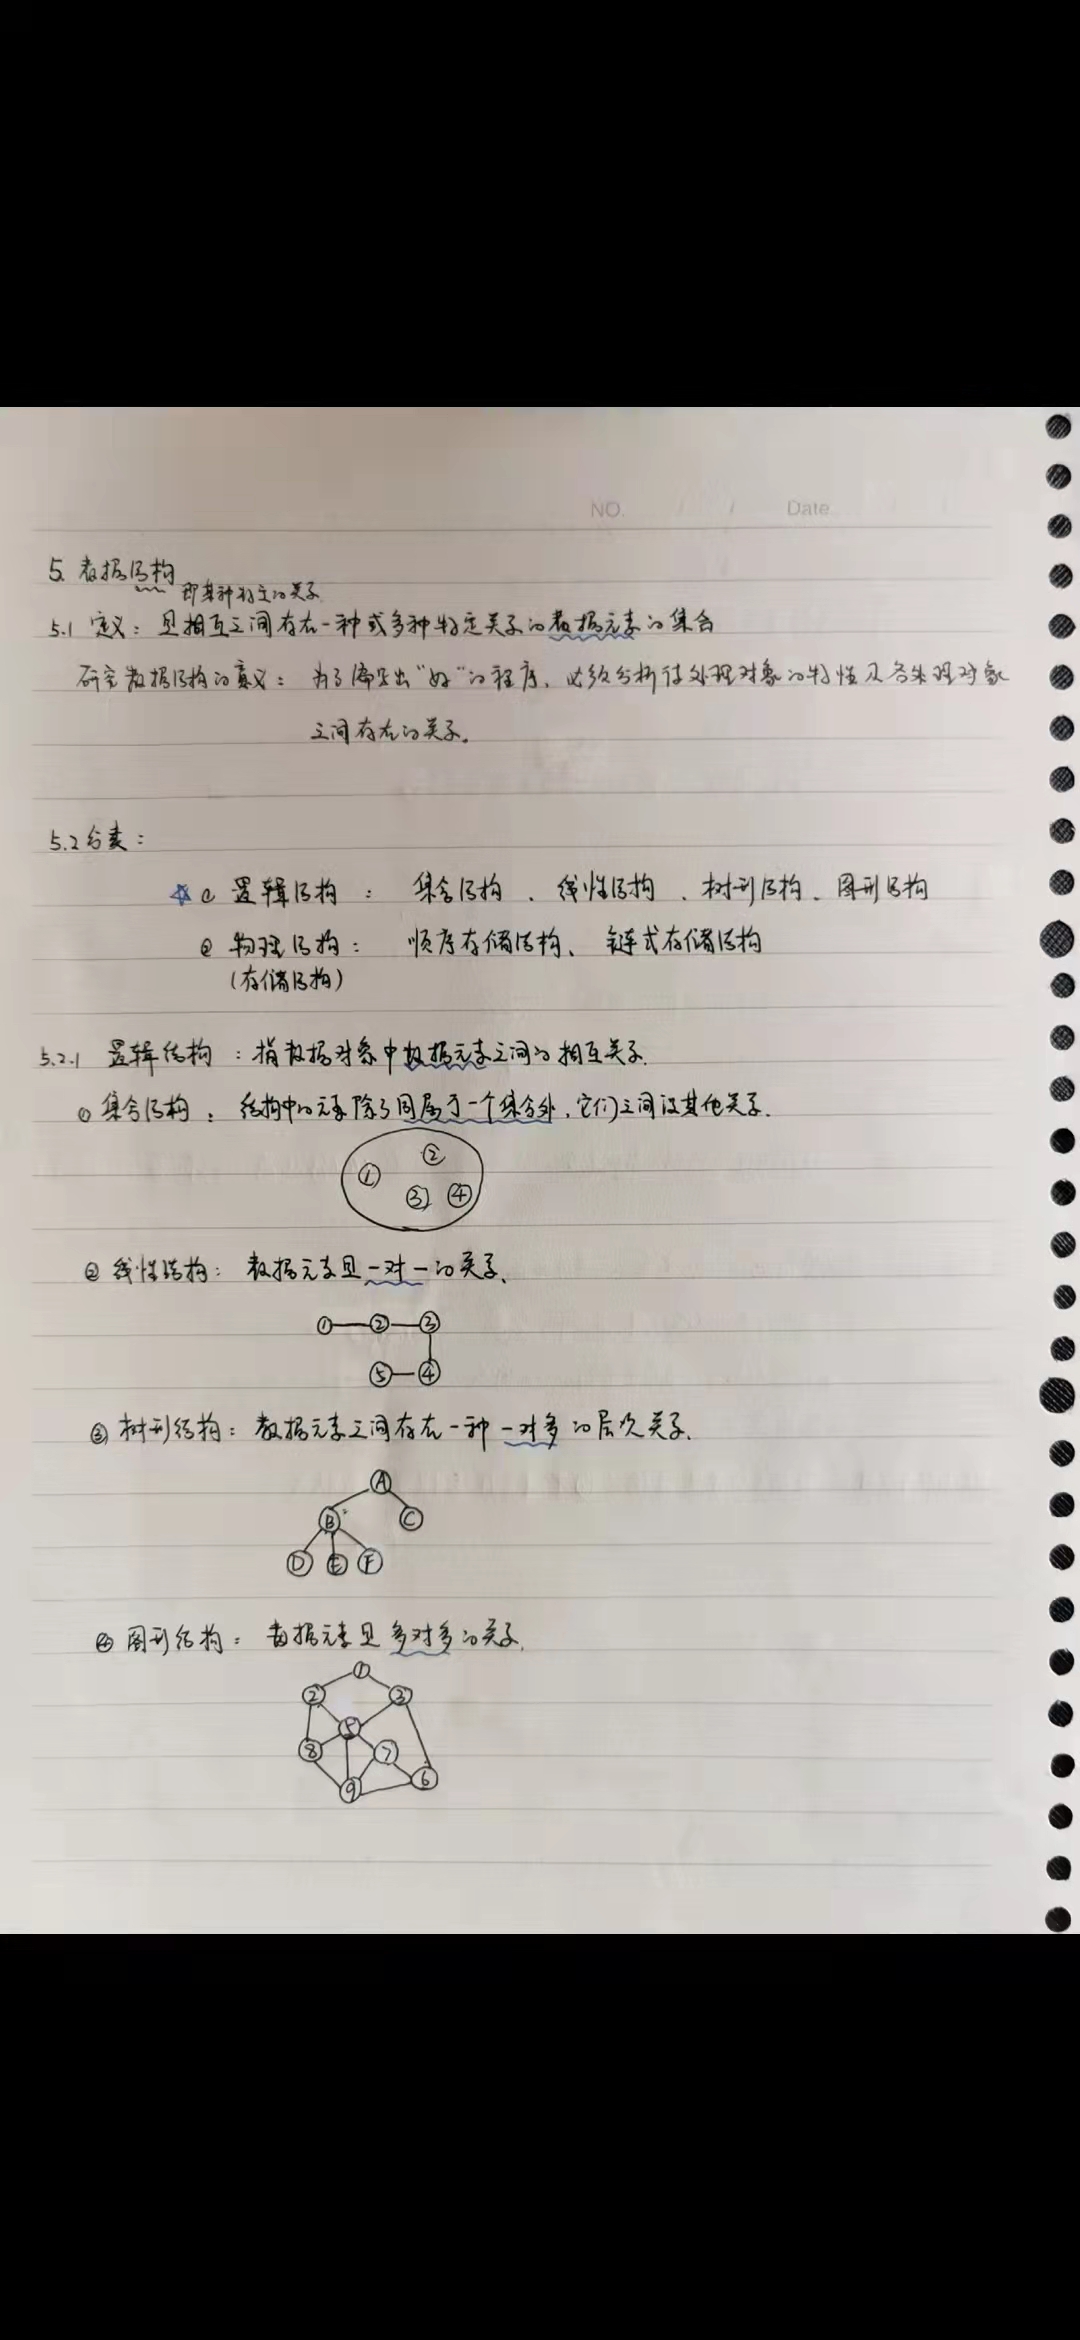 NO. / Date
5. 数据结构
即某种特定的关系
5.1 定义：是相互之间存在一种或多种特定关系的数据元素的集合
研究数据结构的意义：为了编写出“好”的程序，必须分析待处理对象的特性及各处理对象
之间存在的关系。
5.2 分类：
☆ ① 逻辑结构：集合结构、线性结构、树形结构、图形结构
② 物理结构：顺序存储结构、链式存储结构
(存储结构)
5.2.1 逻辑结构：指数据对象中数据元素之间的相互关系.
① 集合结构：结构中的元素除了同属于一个集合外，它们之间没其他关系.
②
① ③ ④
② 线性结构：数据元素是一对一的关系.
① ② ③
⑤ ④
③ 树形结构：数据元素之间存在一种一对多的层次关系.
A
B C
D E F
④ 图形结构：数据元素是多对多的关系.
①
② 3
5
8 7
9 6